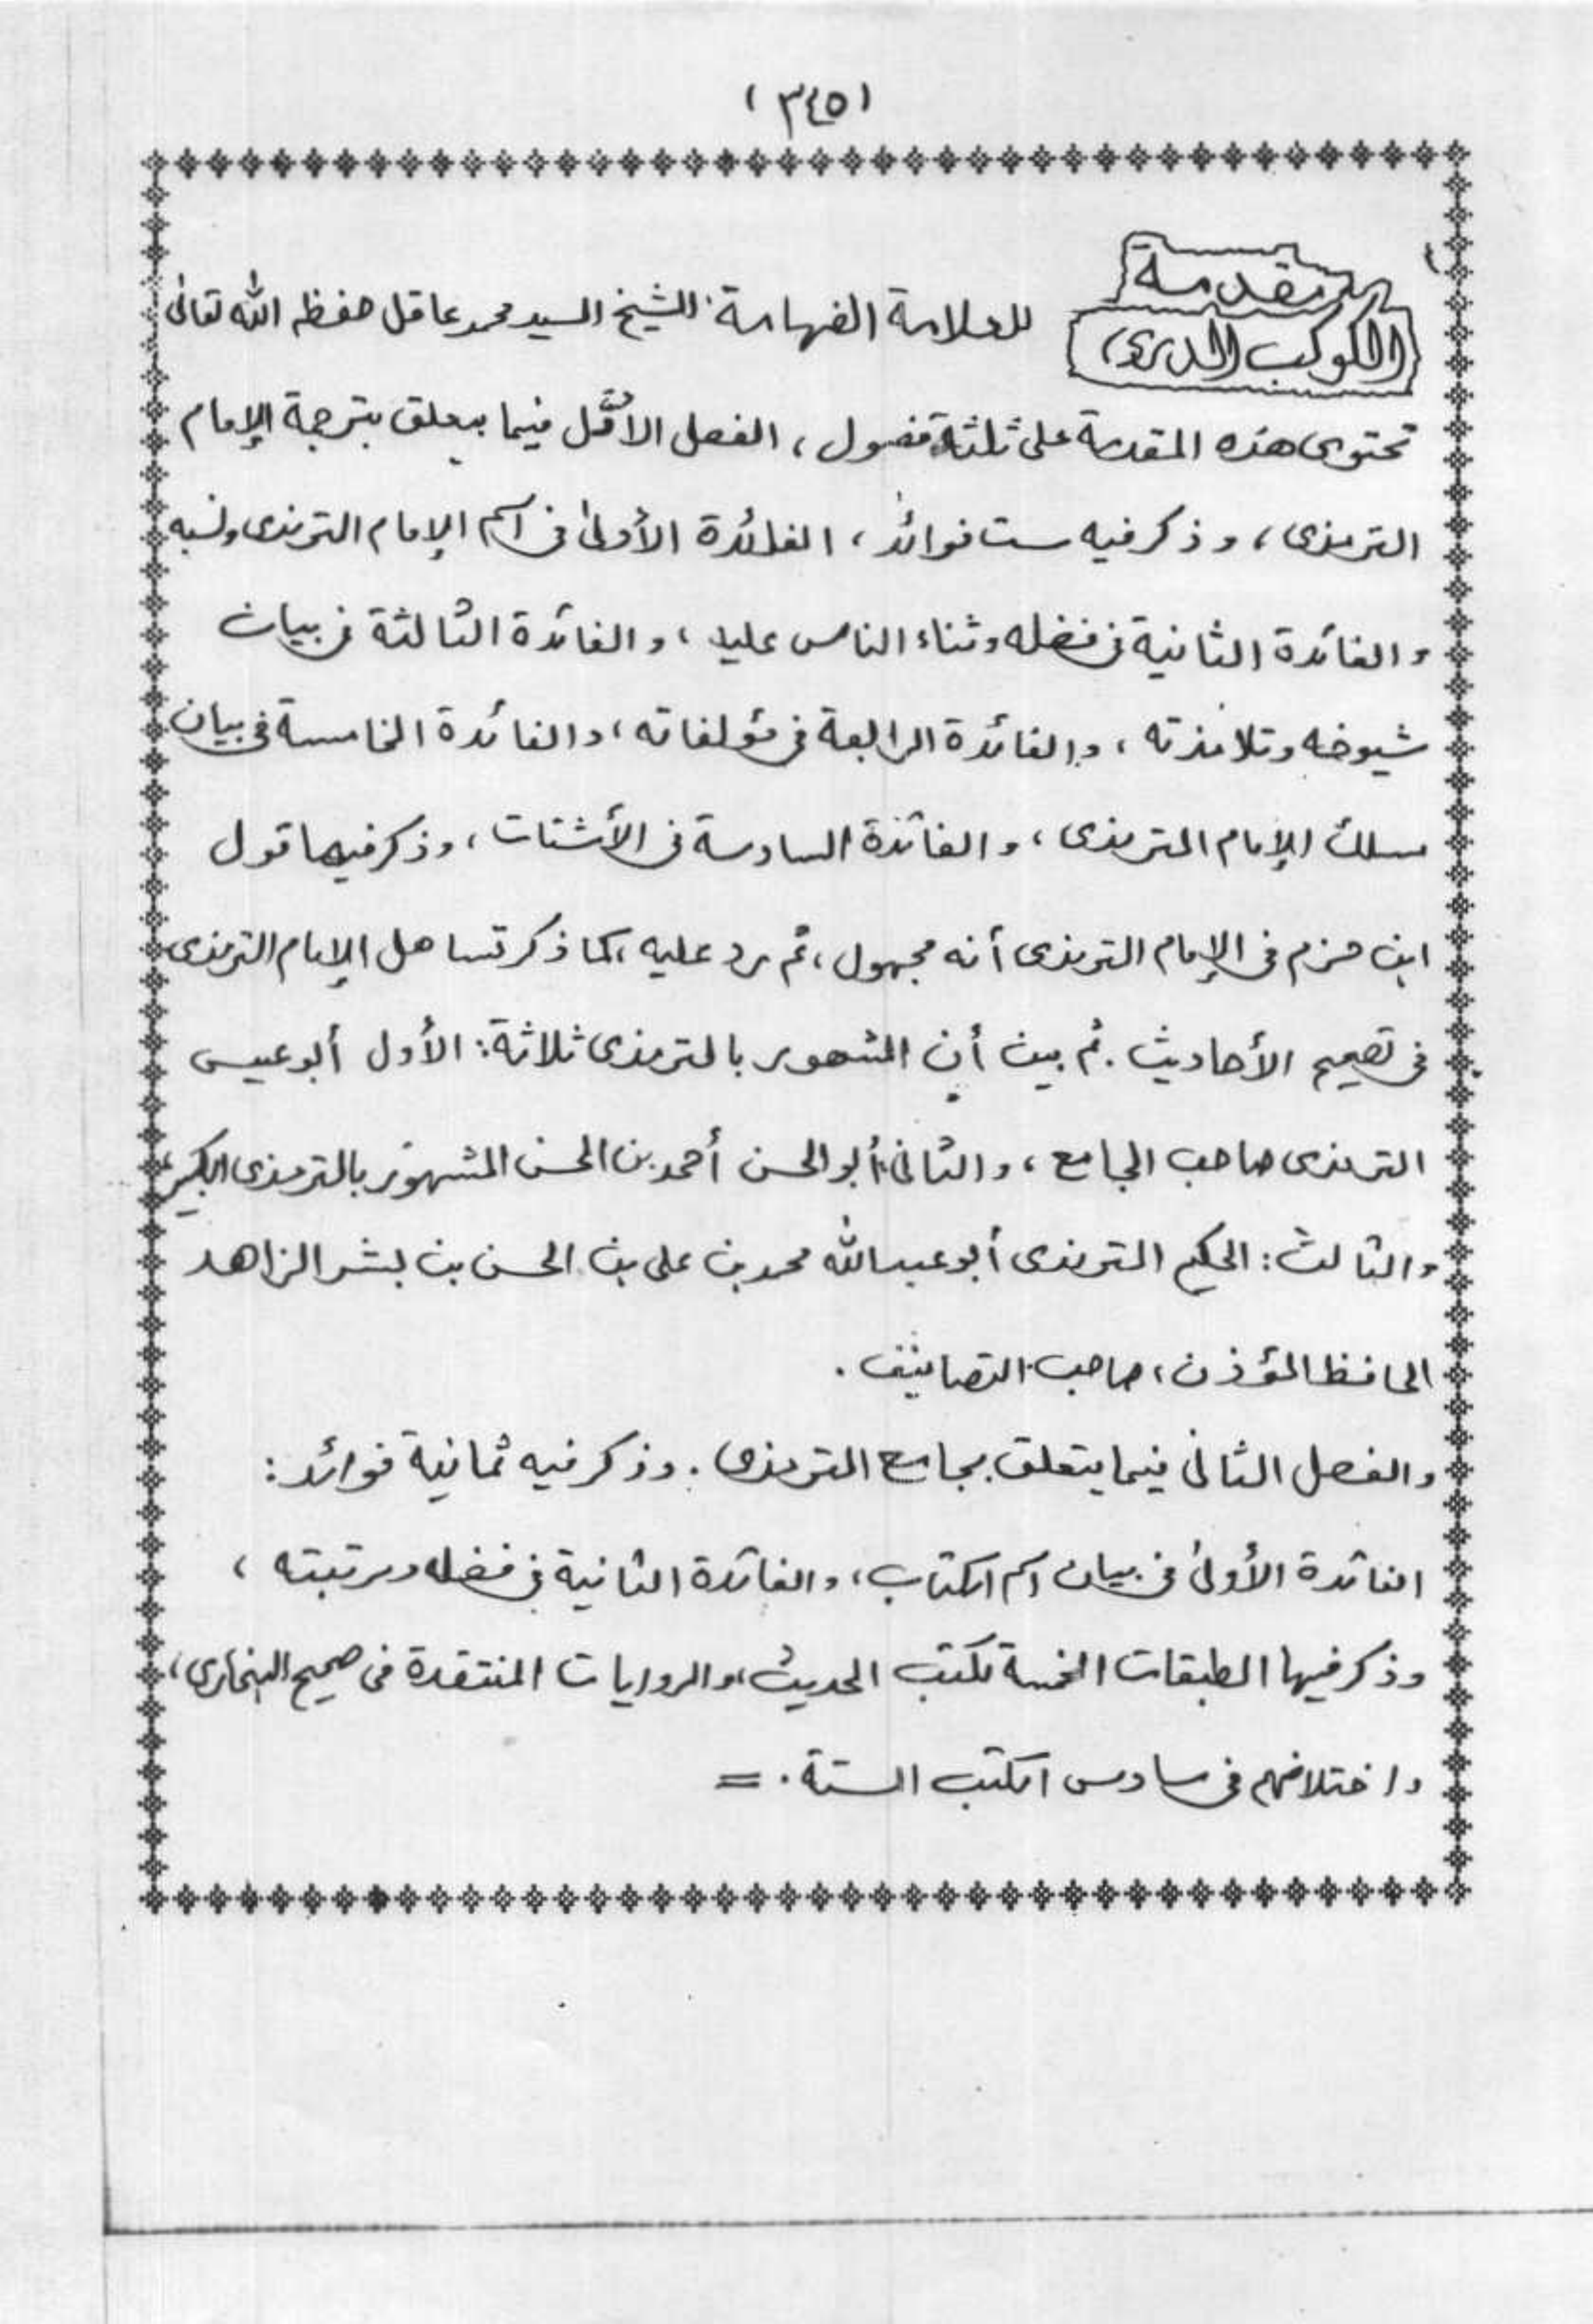 (٣٤٥)
مقدمة
الكوكب الدري
للعلامة الفهامة الشيخ السيد محمد عاقل حفظه الله تعالى
تحتوى هذه المقدمة على ثلثة فصول، الفصل الأول فيما يتعلق بترجمة الإمام
الترمذى، وذكر فيه ست فوائد، الفائدة الأولى فى اسم الإمام الترمذى ونسبه
والفائدة الثانية فى فضله وثناء الناس عليه، والفائدة الثالثة فى بيان
شيوخه وتلامذته، والفائدة الرابعة فى مؤلفاته، والفائدة الخامسة فى بيان
مسلك الإمام الترمذى، والفائدة السادسة فى الأشتات، وذكر فيها قول
ابن حزم فى الإمام الترمذى أنه مجهول، ثم رد عليه، كما ذكر تساهل الإمام الترمذى
فى تصحيح الأحاديث. ثم بين أن المشهور بالترمذى ثلاثة: الأول أبو عيسى
الترمذى صاحب الجامع، والثانى: أبو الحسن أحمد بن الحسن المشهور بالترمذى الكبير،
والثالث: الحكيم الترمذى أبو عبد الله محمد بن على بن الحسن بن بشر الزاهد
الحافظ المؤذن، صاحب التصانيف.
والفصل الثانى فيما يتعلق بجامع الترمذى. وذكر فيه ثمانية فوائد:
الفائدة الأولى فى بيان اسم الكتاب، والفائدة الثانية فى فضله ومرتبته،
وذكر فيها الطبقات الخمسة لكتب الحديث، والروايات المنتقدة فى صحيح البخارى،
واختلافهم فى سادس الكتب الستة. =